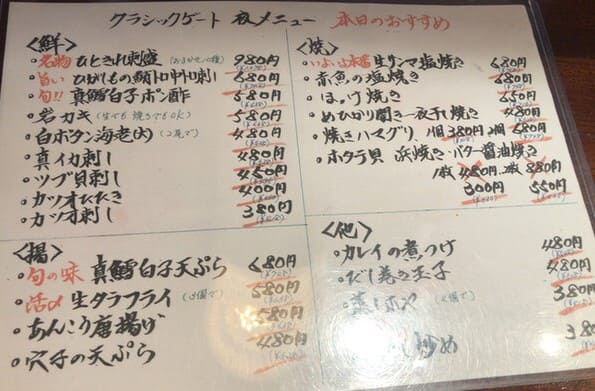 クラシックゲート 夜メニュー 本日のおすすめ
<鮮>
・名物 ひときれ刺盛 980円
・旨い ひがしもの鮪トロ中中刺し 680円
・旬!! 真鱈白子ポン酢 580円
・岩カキ (生でも焼きでもOK) 580円
・白ボタン海老(大) (2尾で) 480円
・真イカ刺し 480円
・ツブ貝刺し 450円
・カツオたたき 400円
・カツオ刺し 380円
<焼>
・いよいよ本番 生サンマ塩焼き 680円
・赤魚の塩焼き 480円
・ほっけ焼き 550円
・めひかり開き一夜干し焼き 480円
・焼きハマグリ 1個 380円 2個 580円
・ホタテ貝 浜焼き・バター醤油焼き
1枚 480円 2枚 880円
300円 550円
<揚>
・旬の味 真鱈白子天ぷら 680円
・活〆 生タラフライ 580円
・あんこう唐揚げ 580円
・穴子の天ぷら 480円
<他>
・カレイの煮つけ 480円
・だし巻き玉子 480円
・蒸しホヤ 380円
炒め 380